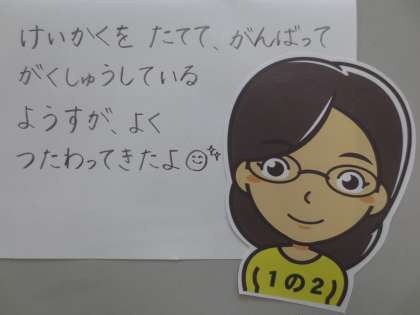 けいかくを たてて、がんばって
がくしゅうしている
ようすが、よく
つたわってきたよ
1の2